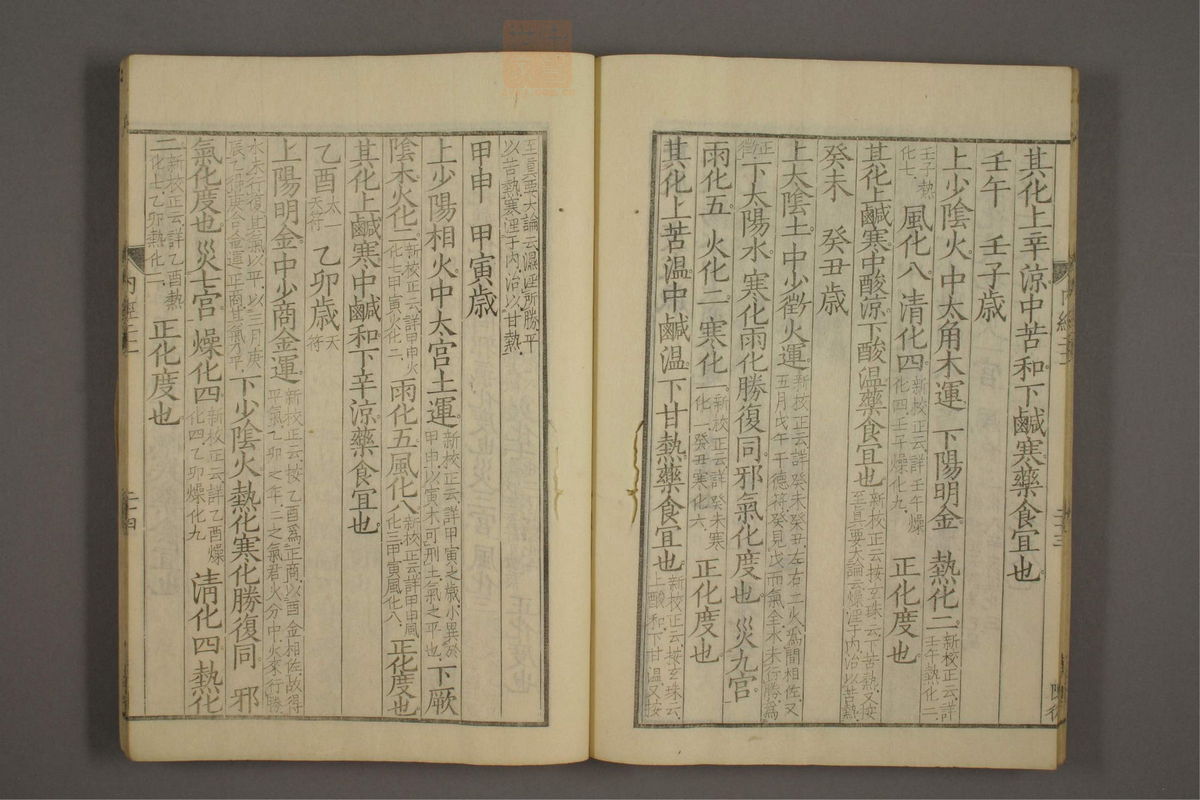 其化上辛涼中苦和下鹹寒藥食宜也
壬午　壬子歲
上少陰火　中太角木運　下陽明金　熱化二新校正云詳壬午熱化二
壬子熱化七　風化八　清化四新校正云詳壬午燥化四壬子燥化九　正化度也
其化上鹹寒中酸涼下酸溫藥食宜也新校正云按玄珠云下苦熱又按至真要大論云燥淫于內治以苦熱
癸未　癸丑歲
上太陰土　中少徵火運新校正云詳癸未癸丑左右二火為間相佐又五月戊午干德符癸見戊而氣全水未行勝為
正徵下太陽水　寒化雨化勝復同邪氣化度也　災九宮
雨化五　火化二　寒化一新校正云詳癸未寒化一癸丑寒化六　正化度也
其化上苦溫中鹹溫下甘熱藥食宜也新校正云按玄珠云上酸和下甘溫又按
至真要大論云濕淫所勝平以苦熱寒淫于內治以甘熱
甲申　甲寅歲
上少陽相火中太宮土運新校正云詳甲寅之歲小異於甲申以寅木可刑土氣之平也下厥
陰木火化二新校正云詳甲申火化七甲寅火化二雨化五風化八新校正云詳甲申風化三甲寅風化八正化度也
其化上鹹寒中鹹和下辛涼藥食宜也
乙酉太一天符　乙卯歲天符
上陽明金中少商金運新校正云按乙酉爲正商以酉金相佐故得平氣乙卯之年二之氣君火分中火來行勝
水未行復其氣以平以三月庚辰乙得庚合金運正商其氣乃平下少陰火熱化寒化勝復同　邪
氣化度也　災七宮　燥化四新校正云詳乙酉燥化四乙卯燥化九　清化四　熱化
二新校正云詳乙酉熱化七乙卯熱化二　正化度也
內經二十
二十四
二十三